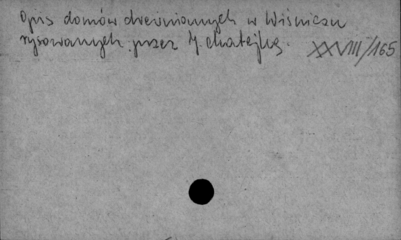 Opis domów drewnianych w Wiśniczu
rysowanych przez J. Matejkę.
XXVIII/165